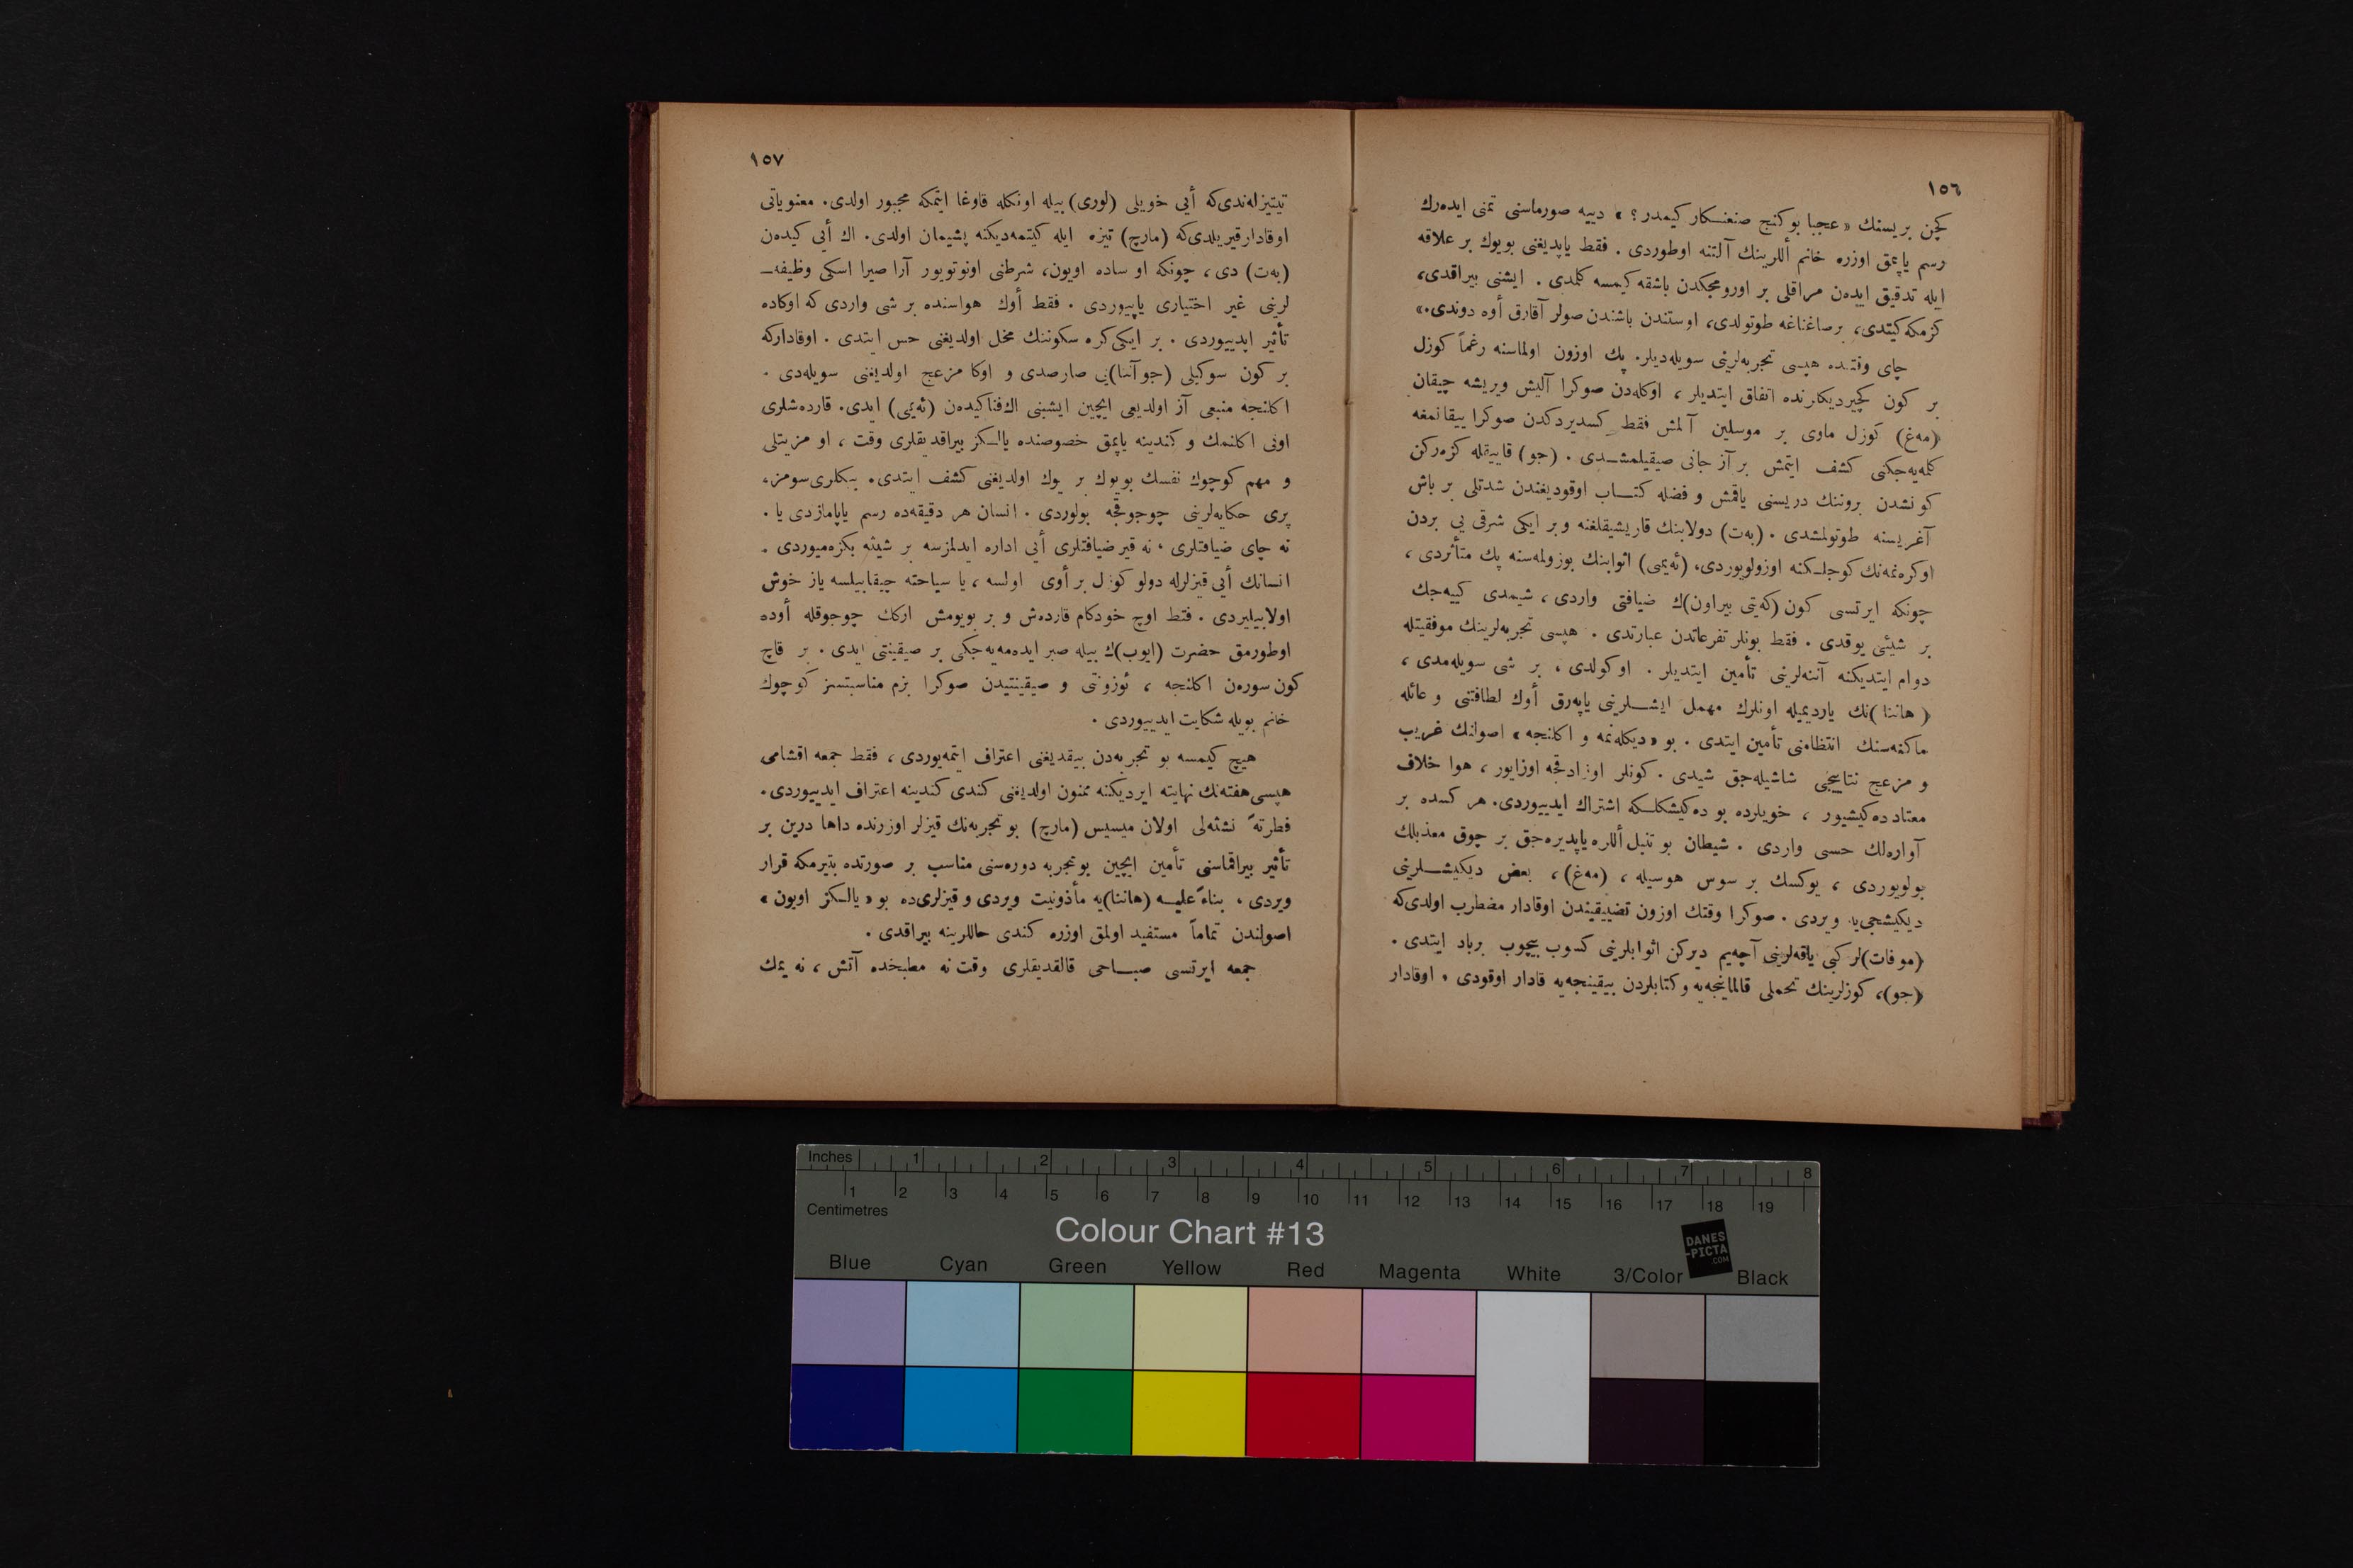 ١٥٦
كچن بريسنك « عجبا بو كنج صنعتكار كيمدر؟ » دييه صورماسنى تمنى ايده‌رك
رسم ياپمق اوزره خانم أللرينك آلتنه اوطوردى . فقط ياپديغنى بويوك بر علاقه
ايله تدقيق ايده‌ن مراقلى بر اورومجكدن باشقه كيمسه كلمدى . ايشنى بيراقدى،
كزمكه كيتدى، بر صاغناغه طوتولدى، اوستندن باشندن صولر آقارق أوه دوندى.»
چاى وقتنده هپسى تجربه‌لرينى سويله‌ديلر. پك اوزون اولماسنه رغماً كوزل
بر كون كچيرديكلرنده اتفاق ايتديلر ، اوكله‌دن صوكرا آليش ويريشه چيقان
(مه‌غ) كوزل ماوى بر موسلين آلمش فقط كسديردكدن صوكرا ييقانمغه
كلمه‌يه‌جكنى كشف ايتمش بر آز جانى صيقيلمشدى . (جو) قاييقله كزه‌ركن
كونشدن بروننك دريسنى ياقمش و فضله كتاب اوقوديغندن شدتلى بر باش
آغريسنه طوتولمشدى . (به‌ت) دولابنك قاريشيقلغنه و بر ايكى شرقى يى بردن
اوكره‌نمه‌نك كوجلكنه اوزولويوردى، (ئه‌يمى) اثوابنك بوزولمه‌سنه پك متأثردى ،
چونكه ايرتسى كون (كه‌يتى بيراون)ك ضيافتى واردى ، شيمدى كييه‌جك
بر شيئى يوقدى . فقط بونلر تفرعاتدن عبارتدى . هپسى تجربه‌لرينك موفقيتله
دوام ايتديكنه آننه‌لرينى تأمين ايتديلر . او كولدى ، بر شى سويله‌مدى ،
( هاننا )نك يارديميله اونلرك مهمل ايشلرينى ياپه‌رق أوك لطافتنى و عائله
ماكنه‌سنك انتظامنى تأمين ايتدى . بو « ديكله‌نمه و اكلنجه » اصولنك غريب
و مزعج نتاييجى شاشيله‌جق شيدى . كونلر اوزادقجه اوزايور ، هوا خلاف
معتاد ده‌كيشيور ، خويلرده بو ده‌كيشكلكه اشتراك ايدييوردى. هر كسده بر
آواره‌لك حسى واردى . شيطان بو تنبل أللره ياپديره‌جق بر چوق معذبلك
بولويوردى ، يوكسك بر سوس هوسيله ، (مه‌غ) ، بعض ديكيشلرينى
ديكيشجى‌يه ويردى . صوكرا وقتك اوزون تضييقيندن اوقادار مضطرب اولدى‌كه
(موفات)لر كبى ياقه‌لرينى آچه‌يم ديركن اثوابلرينى كسوب بيچوب برباد ايتدى .
(جو)، كوزلرينك تحملى قالماينجه‌يه و كتابلردن بيقينجه‌يه قادار اوقودى ، اوقادار
١٥٧
تيتيزله‌ندى‌كه أيى خويلى (لورى) بيله اونكله قاوغا ايتمكه مجبور اولدى. معنوياتى
اوقادار قيريلدى‌كه (مارچ) تيزه ايله كيتمه‌ديكنه پشيمان اولدى. اك أيى كيده‌ن
(به‌ت) دى ، چونكه او ساده اويون، شرطنى اونوتويور آرا صيرا اسكى وظيفه-
لرينى غير اختيارى ياپييوردى . فقط أوك هواسنده بر شى واردى كه اوكاده
تأثير ايدييوردى . بر ايكى كره سكوننك مختل اولديغنى حس ايتدى . اوقاداركه
بر كون سوكيلى (جو آننا)يى صارصدى و اوكا مزعج اولديغنى سويله‌دى .
اكلنجه منبعى آز اولديغى ايچين ايشينى اك فنا كيده‌ن (ئه‌يمى) ايدى. قارده‌شلرى
اونى اكلنمك و كندينه ياپمق خصوصنده يالكز بيراقديقلرى وقت ، او مزيتلى
و مهم كوچوك نفسك بويوك بر يوك اولديغنى كشف ايتدى. ببكلرى سومز،
پرى حكايه‌لرينى چوجوقجه بولوردى . انسان هر دقيقه‌ده رسم ياپامازدى يا .
نه چاى ضيافتلرى ، نه قير ضيافتلرى أيى اداره ايدلمزسه بر شيئه بكزه‌ميوردى .
انسانك أيى قيزلرله دولو كوزل بر أوى اولسه ، يا سياحته چيقابيلسه ياز خوش
اولابيليردى . فقط اوچ خودكام قارده‌ش و بر بويومش اركك چوجوقله أوده
اوطورمق حضرت (ايوب)ك بيله صبر ايده‌مه‌يه‌جكى بر صيقينتى ايدى . بر قاچ
كون سوره‌ن اكلنجه ، ئوزونتى و صيقينتيدن صوكرا بزم مناسبتسز كوچوك
خانم بويله شكايت ايدييوردى .
هيچ كيمسه بو تجربه‌دن بيقديغنى اعتراف ايتمه‌يوردى ، فقط جمعه اقشامى
هپسى هفته‌نك نهايته ايرديكنه ممنون اولديغنى كندى كندينه اعتراف ايدييوردى.
فطرتهً نشئه‌لى اولان ميسيس (مارچ) بو تجربه‌نك قيزلر اوزرنده داها درين بر
تأثير بيراقماسنى تأمين ايچين بو تجربه دوره‌سنى مناسب بر صورتده بتيرمكه قرار
ويردى ، بناءً عليه (هاننا)يه مأذونيت ويردى و قيزلرى‌ده بو « يالكز اويون »
اصولندن تماماً مستفيد اولمق اوزره كندى حاللرينه بيراقدى .
جمعه ايرتسى صباحى قالقديقلرى وقت نه مطبخده آتش ، نه يمك
Inches 1 2 3 4 5 6 7 8
1 2 3 4 5 6 7 8 9 10 11 12 13 14 15 16 17 18 19
Centimetres
Colour Chart #13
DANES
-PICTA
.COM
Blue Cyan Green Yellow Red Magenta White 3/Color Black